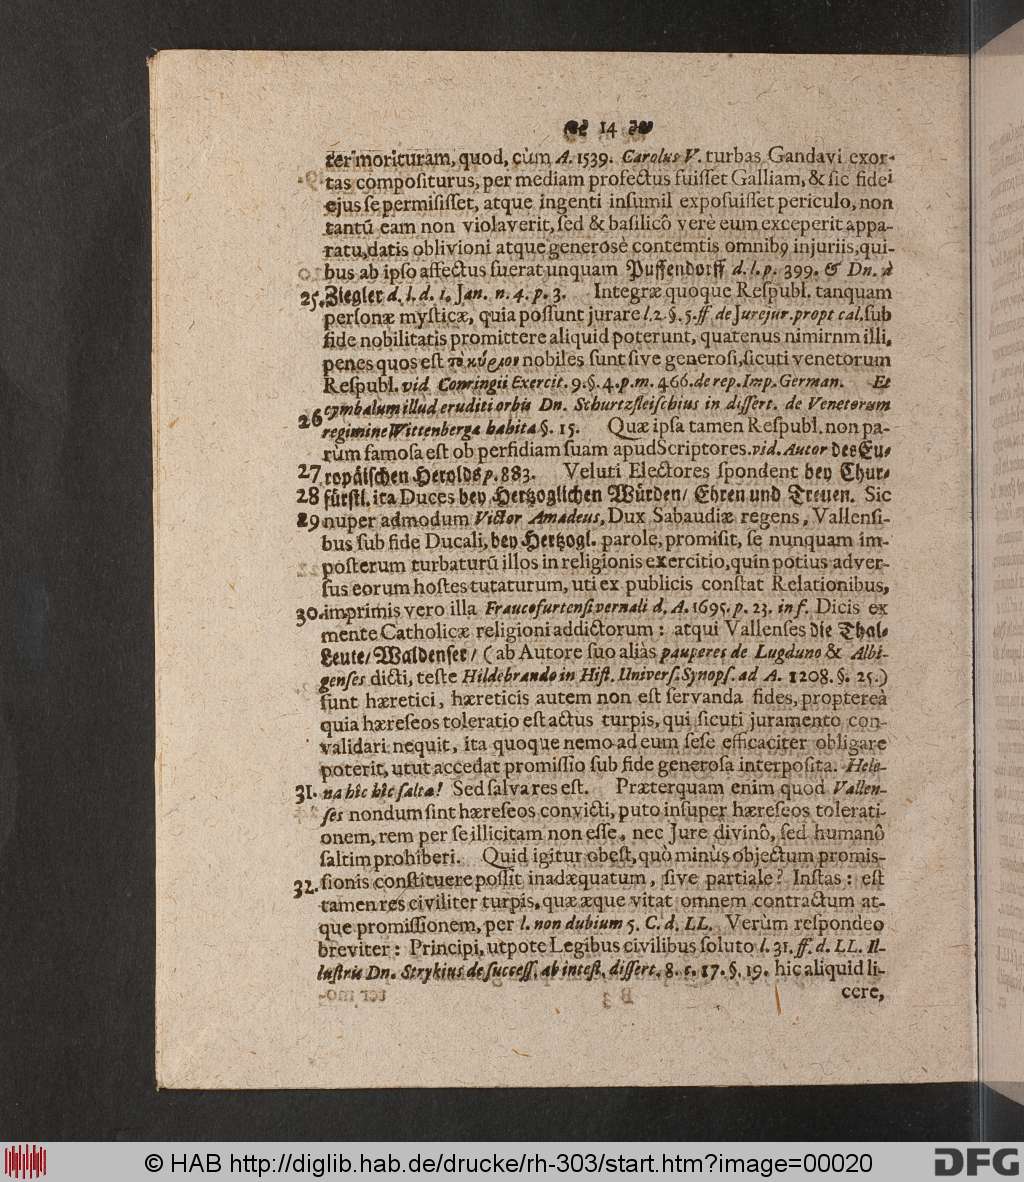 14
ter morituram, quod, cùm A. 1539. Carolus V. turbas Gandavi exor-
tas compositurus, per mediam profectus fuiſſet Galliam, & ſic fidei
ejus ſe permiſiſſet, atque ingenti inſumil expoſuiſſet periculo, non
tantũ eam non violaverit, ſed & baſilicô verè eum exceperit appa-
ratu, datis oblivioni atque generosè contemtis omnibꝰ injuriis, qui-
bus ab ipſo affectus fuerat unquam Puffendorff d. l. p. 399. & Dn. à
25. Ziegler d. l. d. 1. Jan. n. 4. p. 3. Integræ quoque Reſpubl. tanquam
perſonæ myſticæ, quia poſſunt jurare l. 2. §. 5. ff de Jurejur. propt cal. ſub
fide nobilitatis promittere aliquid poterunt, quatenus nimirnm illi,
penes quos eſt τὸ κύριον nobiles ſunt ſive generoſi, ſicuti venetorum
Reſpubl. vid Conringii Exercit. 9. §. 4. p. m. 466. de rep. Imp. German. Et
cymbalum illud eruditi orbis Dn. Schurtzfleiſchius in diſſert. de Venetorum
26 regimine Wittenbergæ habita §. 15. Quæ ipſa tamen Reſpubl. non pa-
rùm famoſa eſt ob perfidiam ſuam apud Scriptores. vid. Autor des Eu-
27 ropäiſchen Herolds p. 883. Veluti Electores ſpondent bey Chur-
28 fürſtl. ita Duces bey Hertzoglichen Würden/ Ehren und Treuen. Sic
29 nuper admodum Victor Amadeus, Dux Sabaudiæ regens, Vallenſi-
bus ſub fide Ducali, bey Hertzogl. parole, promiſit, ſe nunquam im-
poſterum turbaturũ illos in religionis exercitio, quin potius adver-
ſus eorum hoſtes tutaturum, uti ex publicis conſtat Relationibus,
30. imprimis vero illa Francofurtenſi vernali d. A. 1695. p. 23. in f. Dicis ex
mente Catholicæ religioni addictorum: atqui Vallenſes die Thal-
Leute/ Waldenſer/ (ab Autore ſuo aliàs pauperes de Lugduno & Albi-
genſes dicti, teſte Hildebrando in Hiſt. Univerſ. Synopſ. ad A. 1208. §. 25.)
ſunt hæretici, hæreticis autem non eſt ſervanda fides, proptereà
quia hæreſeos toleratio eſt actus turpis, qui ſicuti juramento con-
validari nequit, ita quoque nemo ad eum ſeſe efficaciter obligare
poterit, utut accedat promiſſio ſub fide generoſa interpoſita. Hele-
31. na hîc hîc ſalta! Sed ſalva res eſt. Præterquam enim quod Vallen-
ſes nondum ſint hæreſeos convicti, puto inſuper hæreſeos tolerati-
onem, rem per ſe illicitam non eſſe, nec Jure divinô, ſed humanô
ſaltim prohiberi. Quid igitur obeſt, quò minùs objectum promiſ-
32. ſionis conſtituere poſſit inadæquatum, ſive partiale? Inſtas: eſt
tamen res civiliter turpis, quæ æque vitat omnem contractum at-
que promiſſionem, per l. non dubium 5. C. d. LL. Verùm reſpondeo
breviter: Principi, utpote Legibus civilibus ſoluto l. 31. ff. d. LL. Il-
luſtris Dn. Strykius de ſucceſſ. ab inteſt. diſſert. 8. c. 17. §. 19. hic aliquid li-
cere,
© HAB http://diglib.hab.de/drucke/rh-303/start.htm?image=00020
DFG